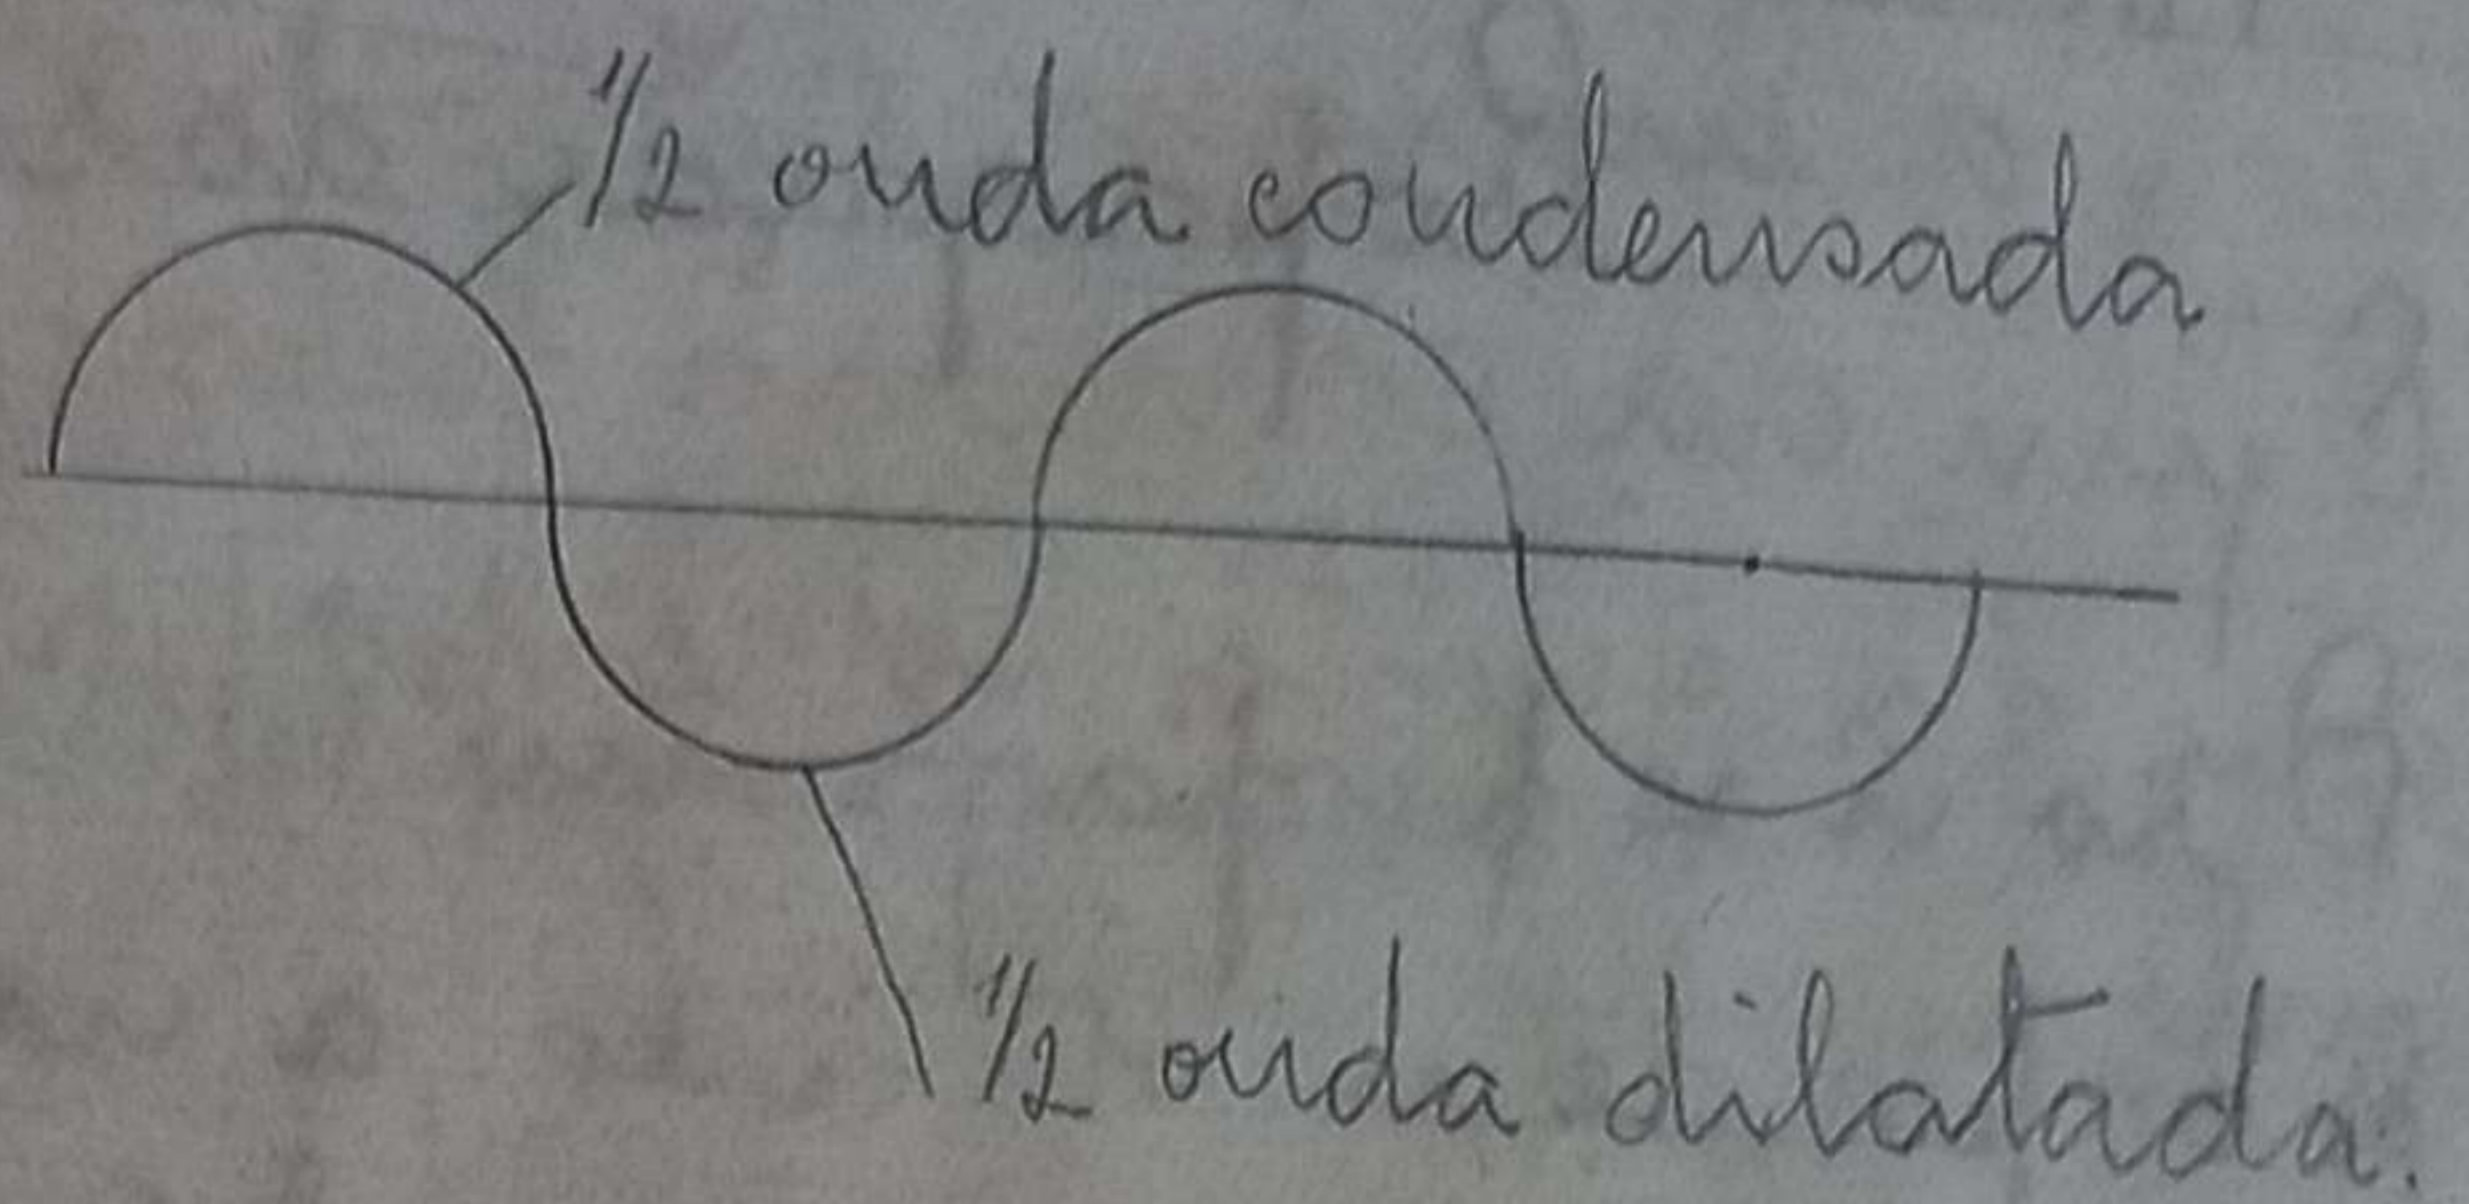 1/2 onda condensada
1/2 onda dilatada.